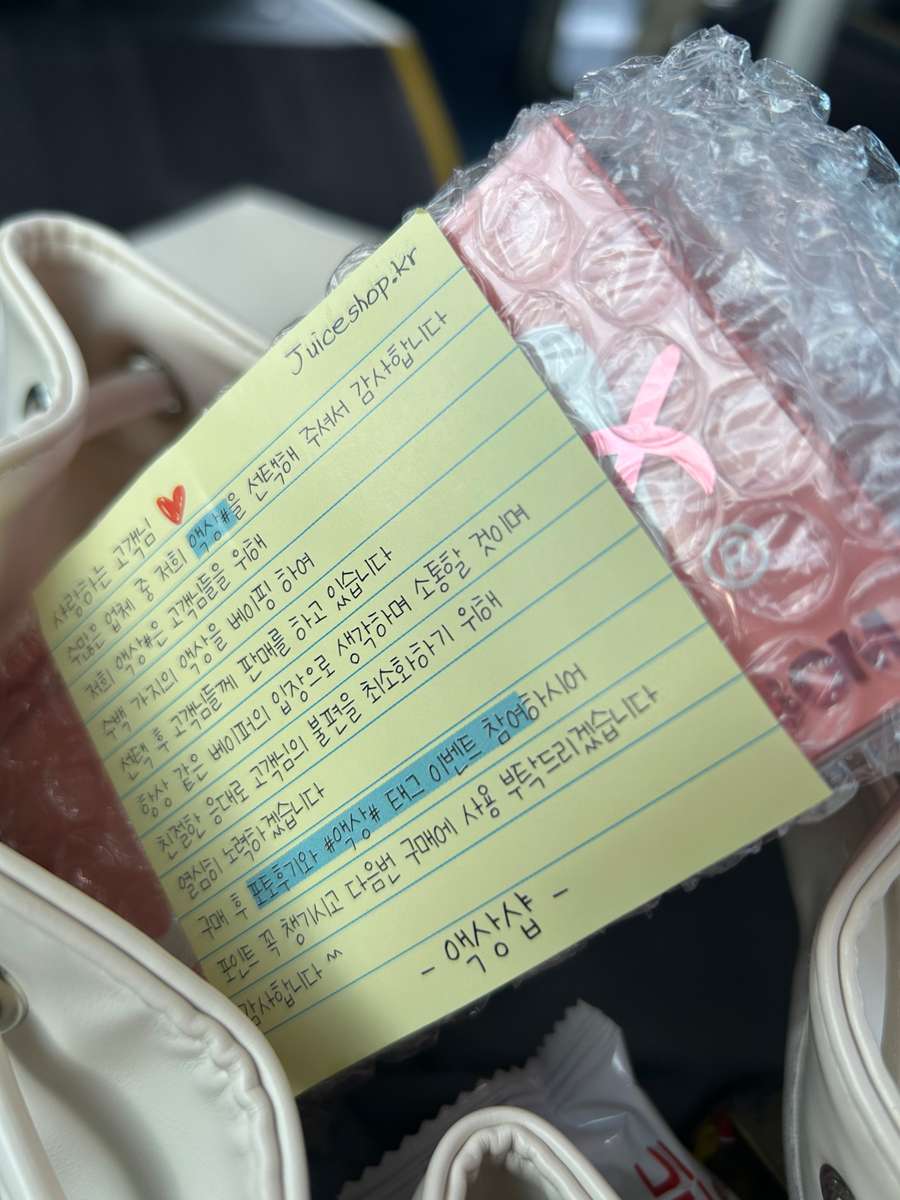 Juiceshop.kr
사랑하는 고객님
수많은 업체 중 저희 액상#을 선택해 주셔서 감사합니다
저희 액상#은 고객님들을 위해
수백 가지의 액상을 베이핑 하여
선택 후 고객님들께 판매를 하고 있습니다
항상 같은 베이퍼의 입장으로 생각하며 소통할 것이며
친절한 응대로 고객님의 불편을 최소화하기 위해
열심히 노력하겠습니다
구매 후 포토후기와 #액상# 태그 이벤트 참여하시어
포인트 꼭 챙기시고 다음번 구매에 사용 부탁드리겠습니다
감사합니다 ~
- 액상샵 -
®